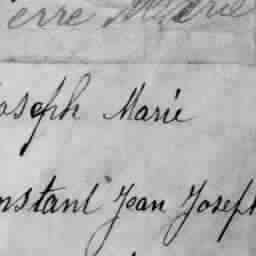 erre Marie
oseph Marie
nstant Jean Joseph